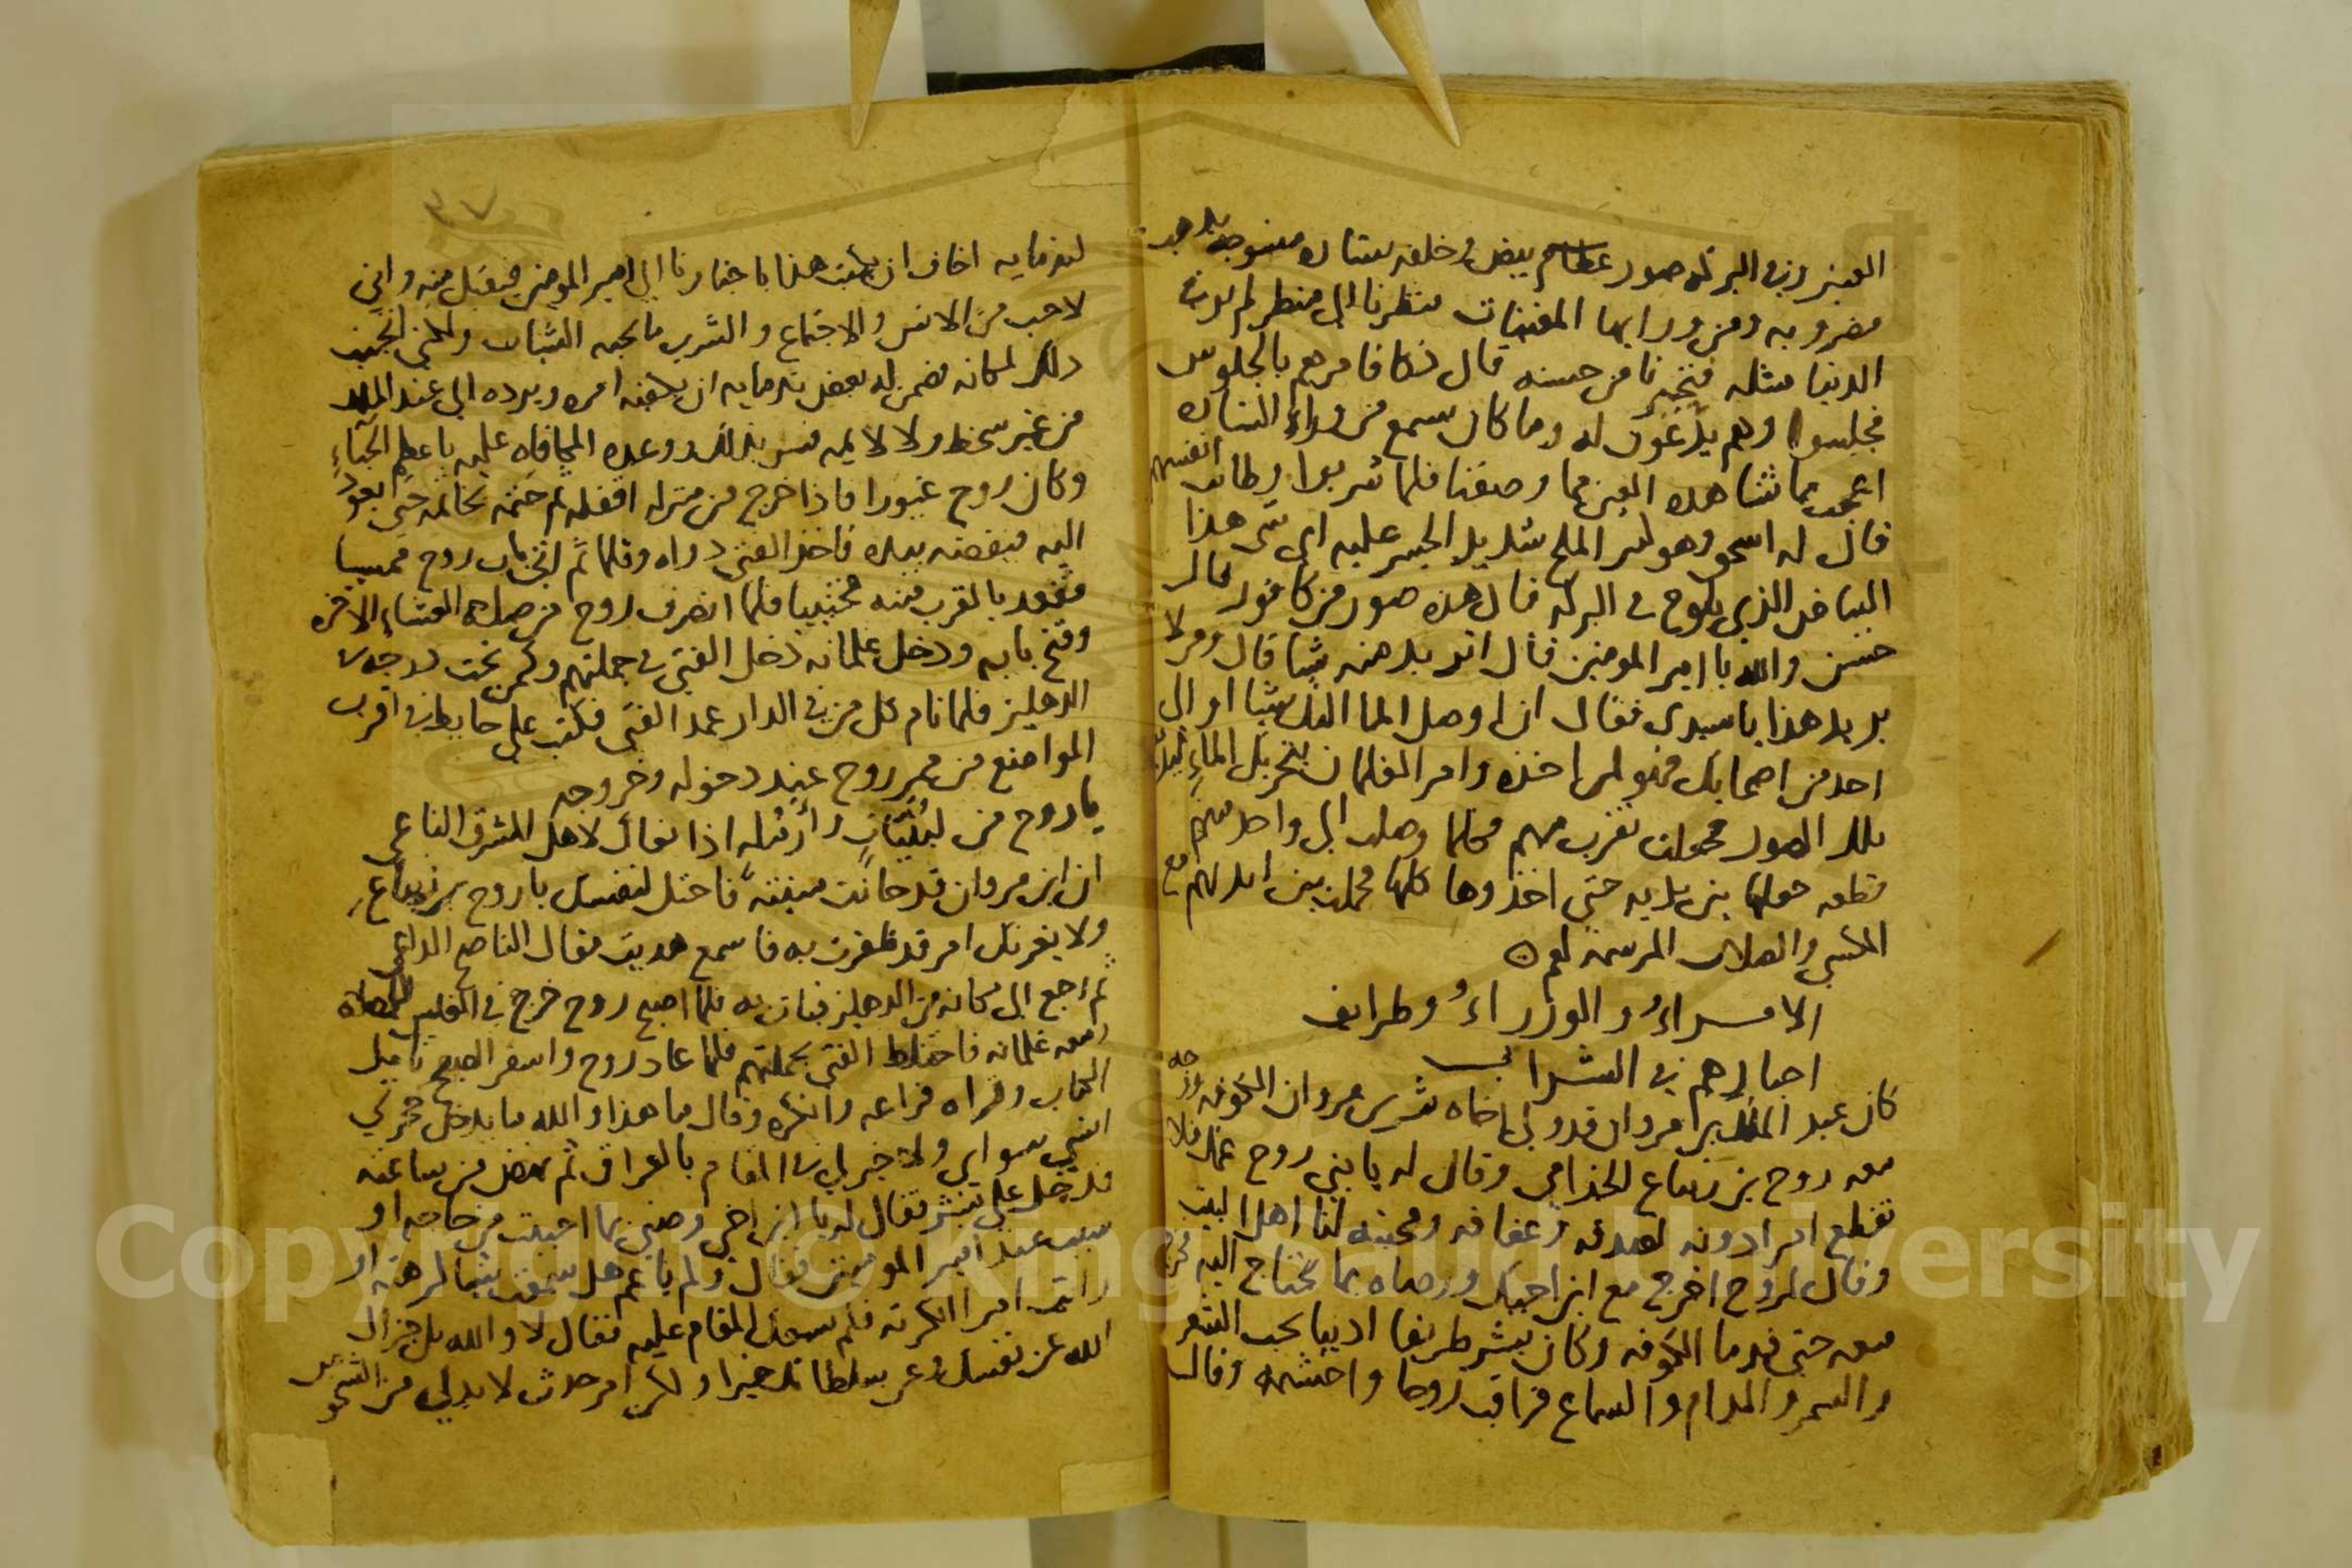 العينين وفي البركة صور عظام بيض وخلفه ستاره منسوجه بذهب
مضروبه ومن ورايها المغنيات فنظرنا الى منظر لم ير في
الدنيا مثله فتحيرنا من حسنه قال فكافا مرهم بالجلوس
فجلسوا وهم يدعون له وما كان يسمع من وراء الستاره
اعجب مما تشاهده العين مما وصفنا فلما شربوا وطابت انفسهم
قال له اسحق وهو شديد عليه اي شي هذا
البياض الذي يلوح في البركه قال هذه صور من كافور قال
حسن والله يا امير المومنين قال اتريد منه شيا قال ومن لا
يريد هذا يا سيدي فقال ان اوصل الما اليك شيا او الى
احد من اصحابك فهو لمن اخذه وامر الغلمان بتحريك الماء
تلك الصور فجعلت تقرب منهم فكلما وصلت الى واحد منهم
قطعه حولها بين يديه حتى اخذوها كلها فحملت بين ايديهم مع
الامراء والوزراء وطرايف
اخبارهم في الشراب
كان عبد الملك بن مروان قد ولى اخاه بشر بن مروان الكوفه ووجه
معه روح بن زنباع الجذامي وقال له يا بني روح عمك فلا
تقطع امرا دونه لصدقه وعفافه ومحبته لنا اهل البيت
وقال لروح اخرج مع ابن اخيك ووصاه بما يحتاج اليه فخرج
معه حتى قدما الكوفه وكان بشر ظريفا اديبا يحب الشعر
والسمر والمدام والسماع فراقب روحا واحتشمه وقال
٣٧
لندمايه اخاف ان يكتب هذا باخبارنا الى امير المومنين فيقبل منه واني
لاحب من الانس والاجتماع والشرب ما يحبه الشباب ولكني اتجنب
ذلك لمكانه فضمن له بعض ندمايه ان يكفيه امره ويرده الى عبد الملك
من غير سخط ولا لايمه فسر بذلك ووعده المكافاه عليه باعظم الحباء
وكان روح غيورا فاذا خرج من منزله اقفله ثم ختمه بخاتمه حتى يعود
اليه فيفضه بيده فاخذ الفتى دواه وقلما ثم اتى باب روح ممسيا
فقعد بالقرب منه مختبيا فلما انصرف روح من صلاه العشاء الاخره
وفتح بابه ودخل غلمانه دخل الفتى في جملتهم وكمن تحت درجه في
الدهليز فلما نام كل من في الدار عمد الفتى فكتب على حايط في اقرب
المواضع من ممر روح عند دخوله وخروجه
يا روح من لبنيات وارمله اذا نعاك لاهل المشرق الناعي
ان ابن مروان قد حانت منيته فاحتل لنفسك يا روح بن زنباع
ولا يغرنك امر قد ظفرت به فاسمع هديت مقال الناصح الداعي
ثم رجع الى مكانه من الدهليز فبات به فلما اصبح روح خرج في الغلس للصلاه
ومعه غلمانه فاختلط الفتى بجملتهم فلما عاد روح واسفر الصبح تامل
الكتاب وقراه فراعه وانكره وقال ما هذا والله ما يدخل حجرتي
انسي سواي ولا خير لي في المقام بالعراق ثم نهض من ساعته
فدخل على بشر فقال له يا ابن اخي وصني بما احببت من حاجه او
سبب عند امير المومنين فقال ولم يا عم هل سمعت شيا كرهته او
رايت امرا انكرته فلم يسعك المقام عليه فقال لا والله بل جزاك
الله عن نفسك وعن سلطانك خيرا ولكن امر حدث لا بد لي من الشخوص نحو